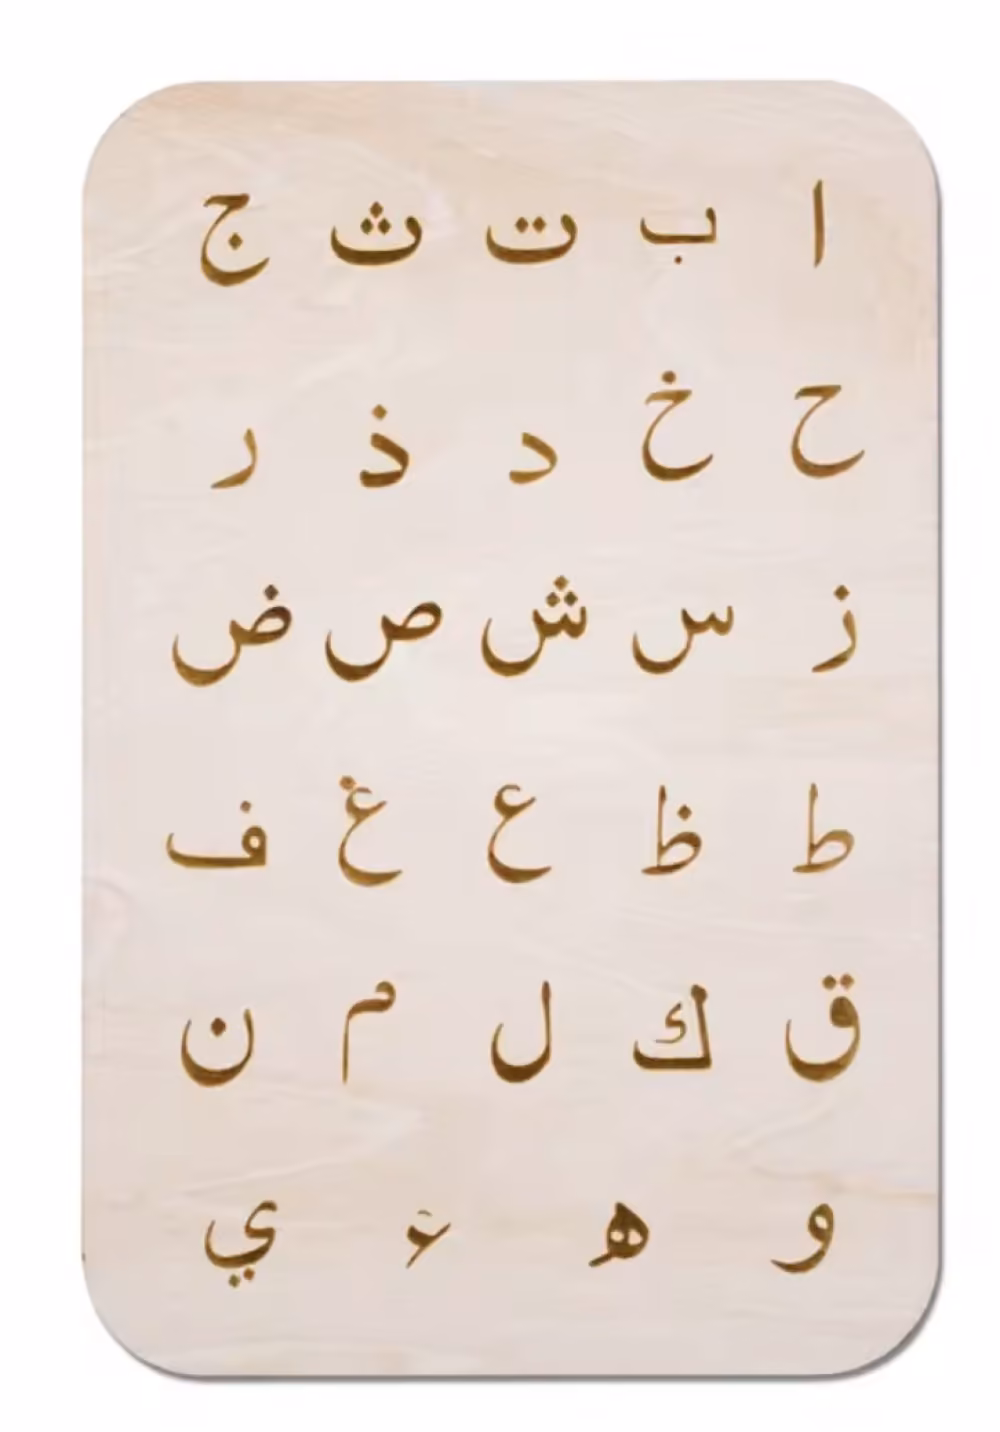 ا ب ت ث ج
ح خ د ذ ر
ز س ش ص ض
ط ظ ع غ ف
ق ك ل م ن
و ه ء ي